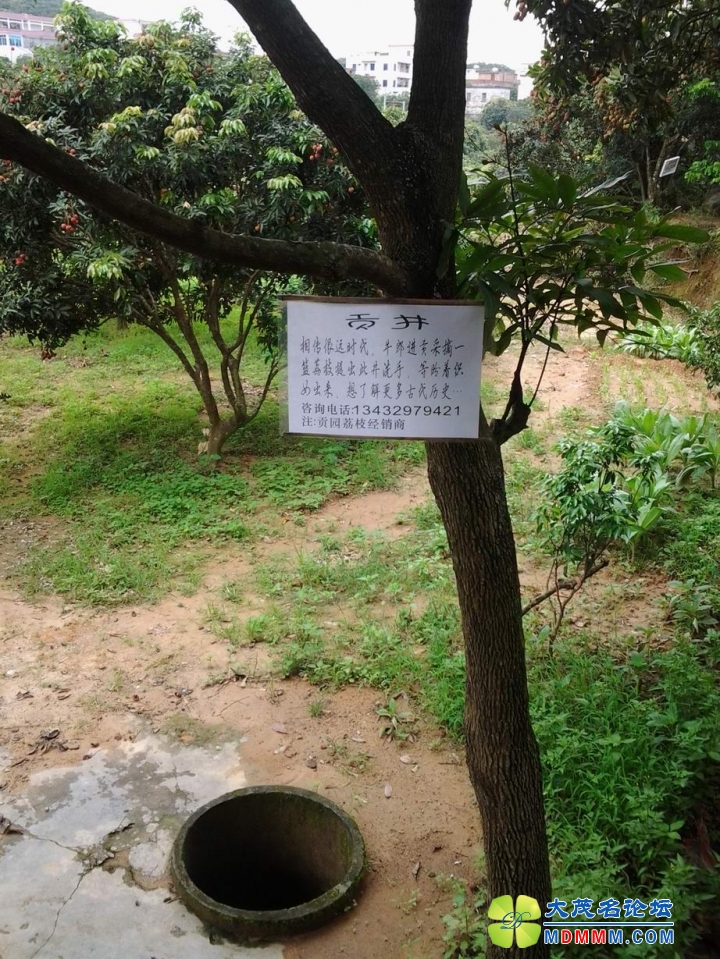 贡井
相传很远时代，牛郎进贡采摘一
篮荔枝提出此井洗手，等的看织
女出来，想了解更多古代历史…
咨询电话:13432979421
注:贡园荔枝经销商
大茂名论坛
MDMMM.COM